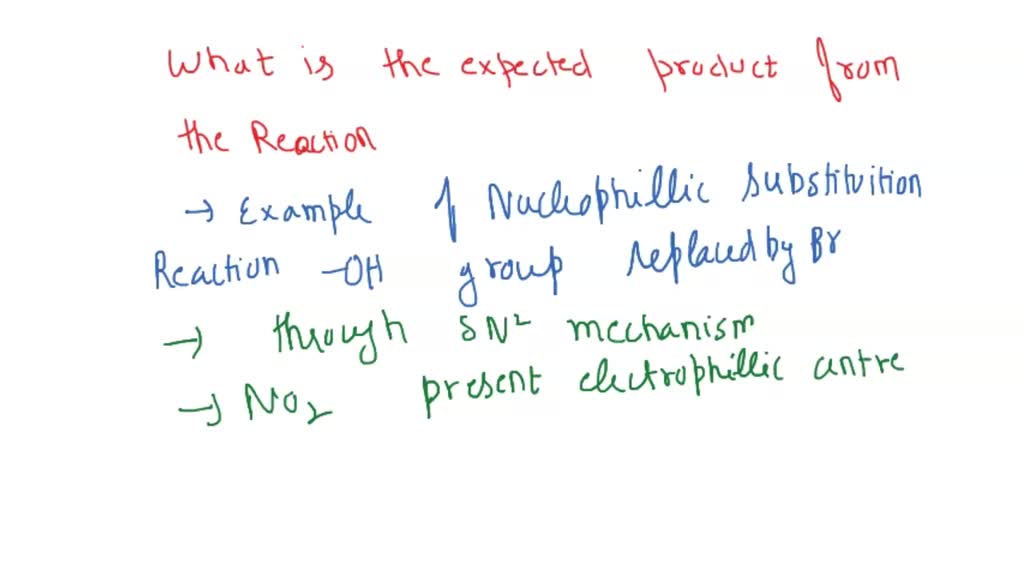 What is the expected product from
the Reaction
→ Example of Nucleophillic substituition
Reaction -OH group replaced by Br
→ through SN² mechanism
→ NO₂ present electrophillic centre